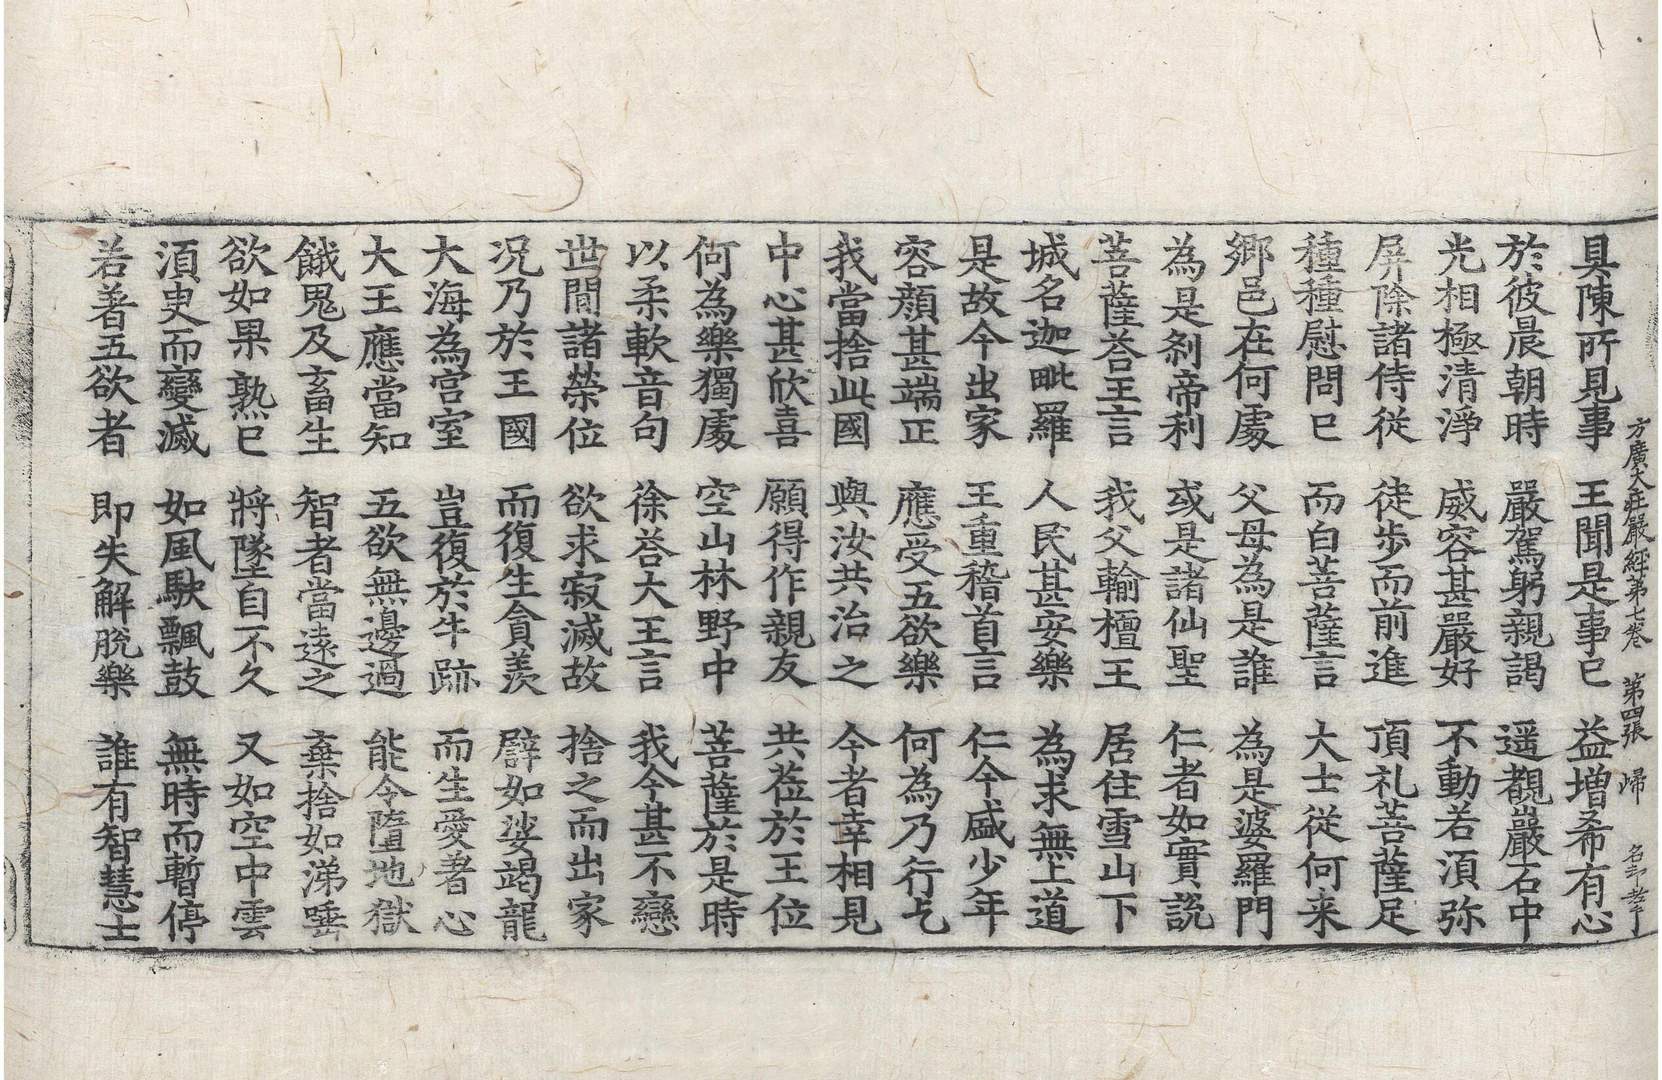 方廣大莊嚴經第七卷　第四張　歸　名
具陳所見事　王聞是事已　益增希有心
於彼晨朝時　嚴駕躬親謁　遥覩巖石中
光相極清淨　威容甚嚴好　不動若須弥
屏除諸侍從　徒步而前進　頂礼菩薩足
種種慰問已　而白菩薩言　大士從何来
鄉邑在何處　父母為是誰　為是婆羅門
為是刹帝利　或是諸仙聖　仁者如實説
菩薩荅王言　我父輸檀王　居住雪山下
城名迦毗羅　人民甚安樂　為求無上道
是故今出家　王重稽首言　仁今盛少年
容顔甚端正　應受五欲樂　何為乃行乞
我當捨此國　與汝共治之　今者幸相見
中心甚欣喜　願得作親友　共莅於王位
何為樂獨處　空山林野中　菩薩於是時
以柔軟音句　徐荅大王言　我今甚不戀
世間諸榮位　欲求寂滅故　捨之而出家
况乃於王國　而復生貪羨　譬如娑竭龍
大海為宮室　豈復於牛跡　而生愛著心
大王應當知　五欲無邊過　能令墮地獄
餓鬼及畜生　智者當遠之　棄捨如涕唾
欲如果熟已　將墜自不久　又如空中雲
須臾而變滅　如風駃飄鼓　無時而暫停
若著五欲者　即失解脫樂　誰有智慧士